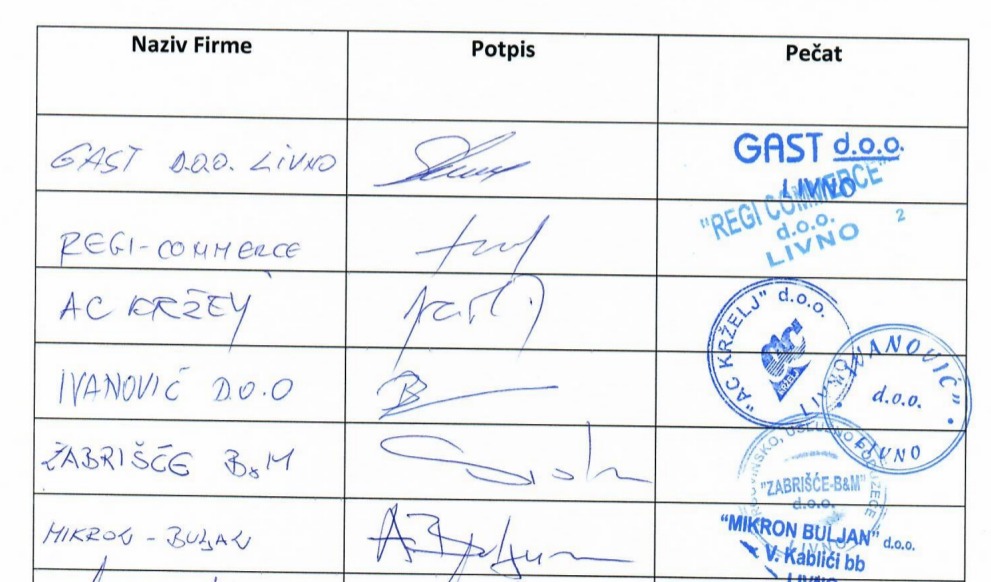 Naziv Firme Potpis Pečat
GAST D.O.O. LIVNO
GAST d.o.o.
LIVNO
REGI-COMMERCE
"REGI COMMERCE"
d.o.o. 2
LIVNO
AC KRŽEY
"AC KRŽELJ" d.o.o.
LIVNO
IVANOVIĆ D.O.O
"IVANOVIĆ"
d.o.o.
LIVNO
ŽABRIŠĆE B&M
USLUŽNO PODUZEĆE
"ZABRIŠĆE-B&M"
d.o.o.
LIVNO
MIKRON - BULJAN
"MIKRON BULJAN" d.o.o.
V. Kablići bb
LIVNO